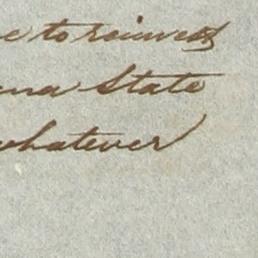 e to reinvest
na State
whatever